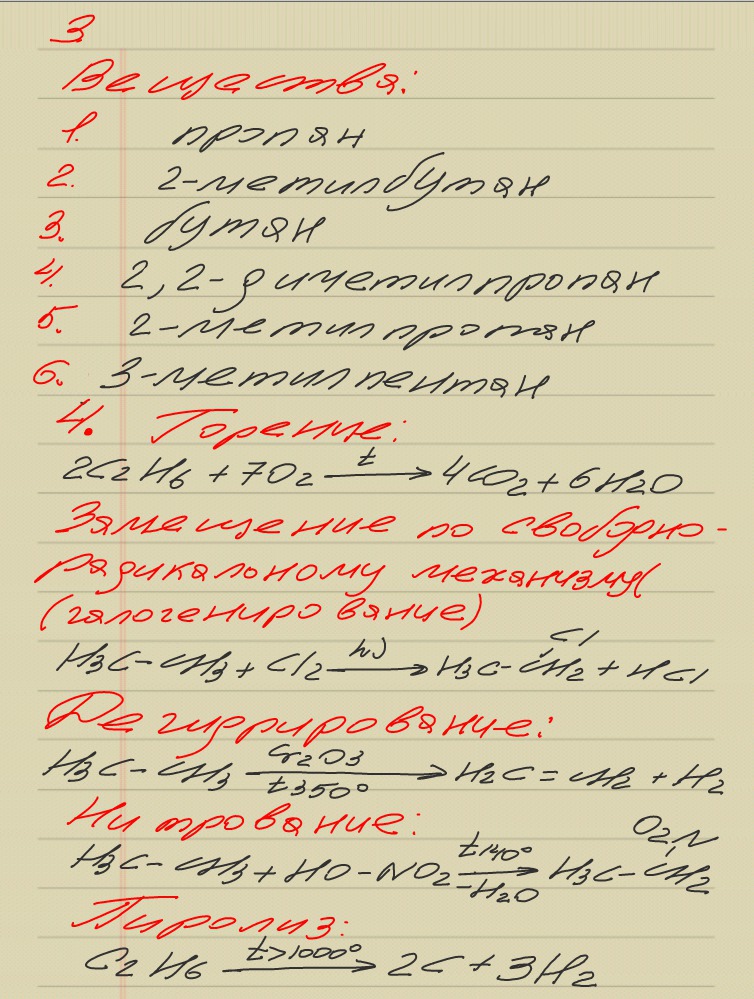 3
Вещества:
1. пропан
2. 2-метилбутан
3. бутан
4. 2,2-диметилпропан
5. 2-метилпропан
6. 3-метилпентан
4. Горение:
2C2H6 + 7O2 t → 4CO2 + 6H2O
Замещение по свободно-
радикальному механизму(
(галогенирование)
Cl
H3C-CH3 + Cl2 hν → H3C-CH2 + HCl
Дегидрирование:
H3C-CH3 Cr2O3 t350° → H2C=CH2 + H2
Нитрование:
O2N
H3C-CH3 + HO-NO2 t140° → -H2O H3C-CH2
Пиролиз:
C2H6 t>1000° → 2C + 3H2